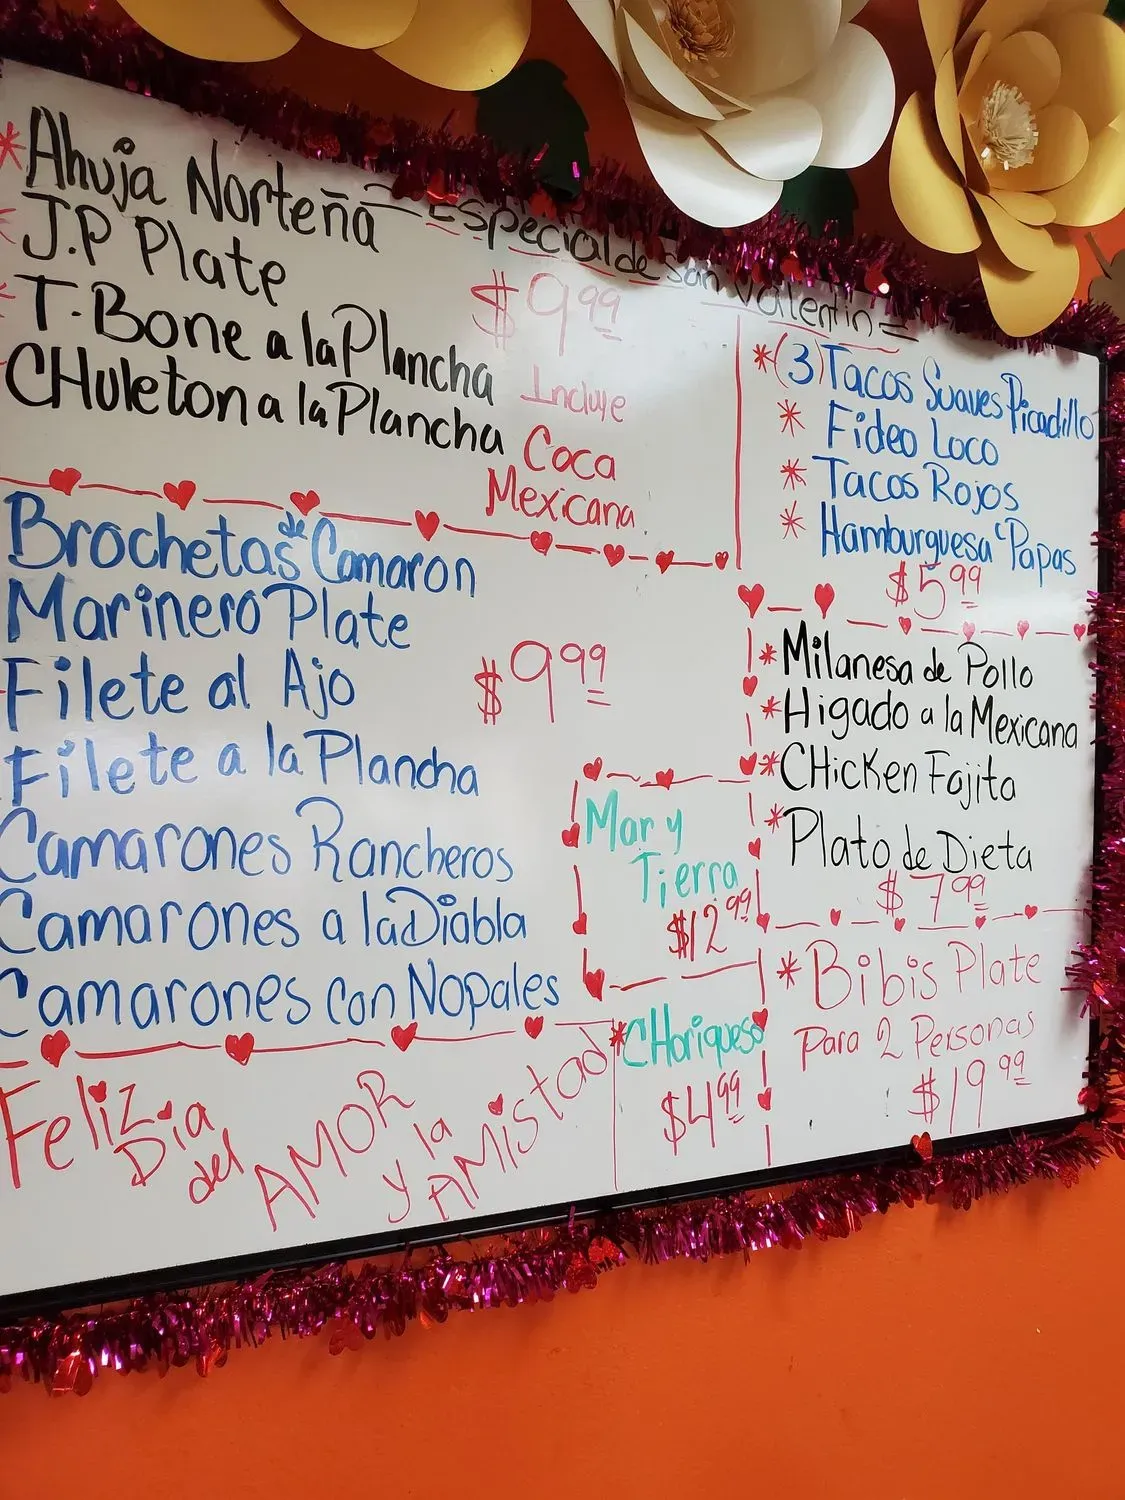 Especial de San Valentin
* Ahuja Norteña
* J.P Plate
* T-Bone a la Plancha
* CHuleton a la Plancha
$9.99
Incluye
Coca
Mexicana
Brochetas de Camaron
Marinero Plate
Filete al Ajo
Filete a la Plancha
Camarones Rancheros
Camarones a la Diabla
Camarones con Nopales
$9.99
Feliz Dia del AMOR y la AMistad
Mar y
Tierra
$12.99
* CHoriqueso
$4.99
* (3) Tacos Suaves Picadillo
* Fideo Loco
* Tacos Rojos
* Hamburguesa c Papas
$5.99
* Milanesa de Pollo
* Higado a la Mexicana
* CHicKen Fajita
* Plato de Dieta
$7.99
* Bibis Plate
Para 2 Personas
$19.99